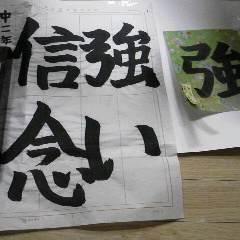 強い
信念
中二年
強